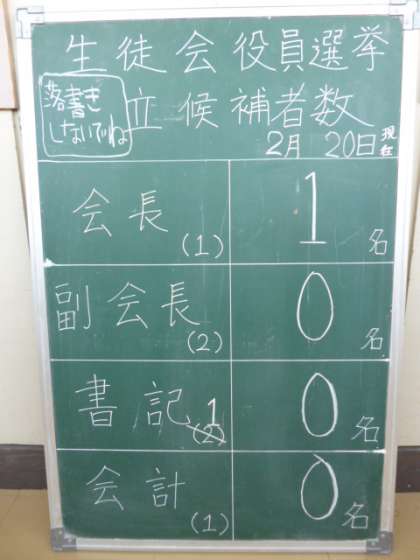 生徒会役員選挙
落書きしないでね
立候補者数
2月 20日現在
会長 (1) 1名
副会長 (2) 0名
書記 1 (2) 0名
会計 (1) 0名